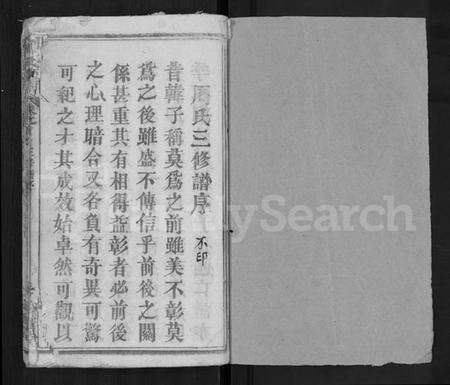 周氏三修譜序 不印
昔韓子稱莫爲之前雖美不彰莫
爲之後雖盛不傳信乎前後之關
係甚重其有相得益彰者必前後
之心理暗合又各負有奇異可驚
可紀之才其成效始卓然可觀以
FamilySearch